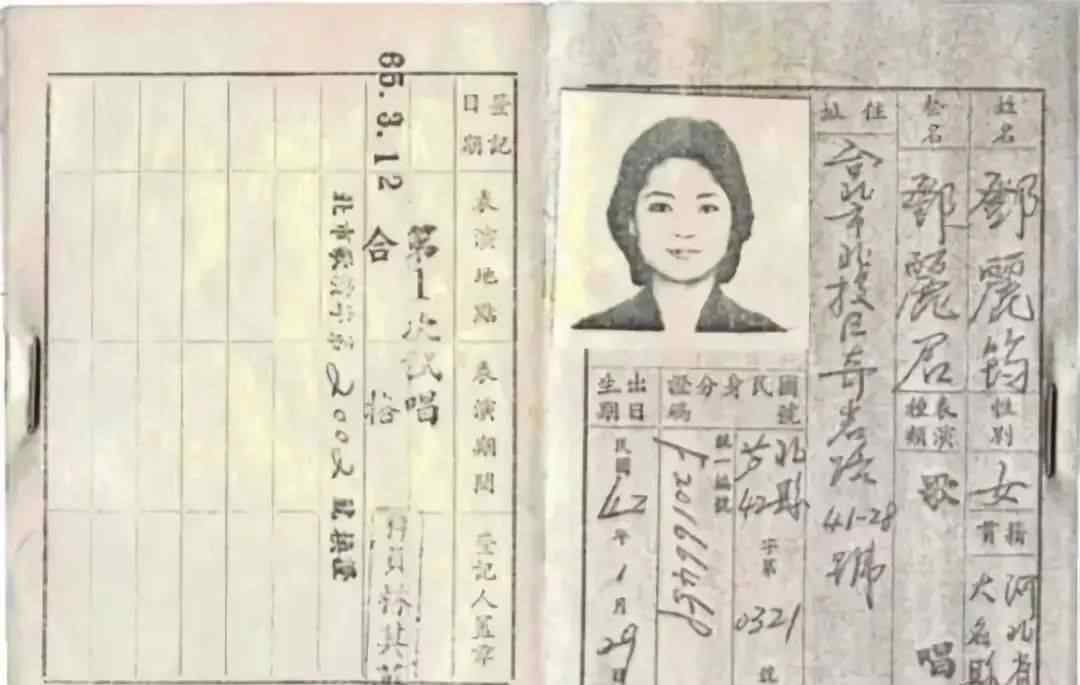 姓名
鄧麗筠
性別
女
籍貫
河北省
大名縣
藝名
鄧麗君
表演種類
歌
唱
住址
台北市北投區奇岩路41-28號
國民身分證號碼
北縣
42字第0321號
統一編號
出生日期
民國42年1月29日
登記日期
表演地點
表演期間
登記人蓋章
第1次試唱
65.3.12
合格
北市
字第2002號